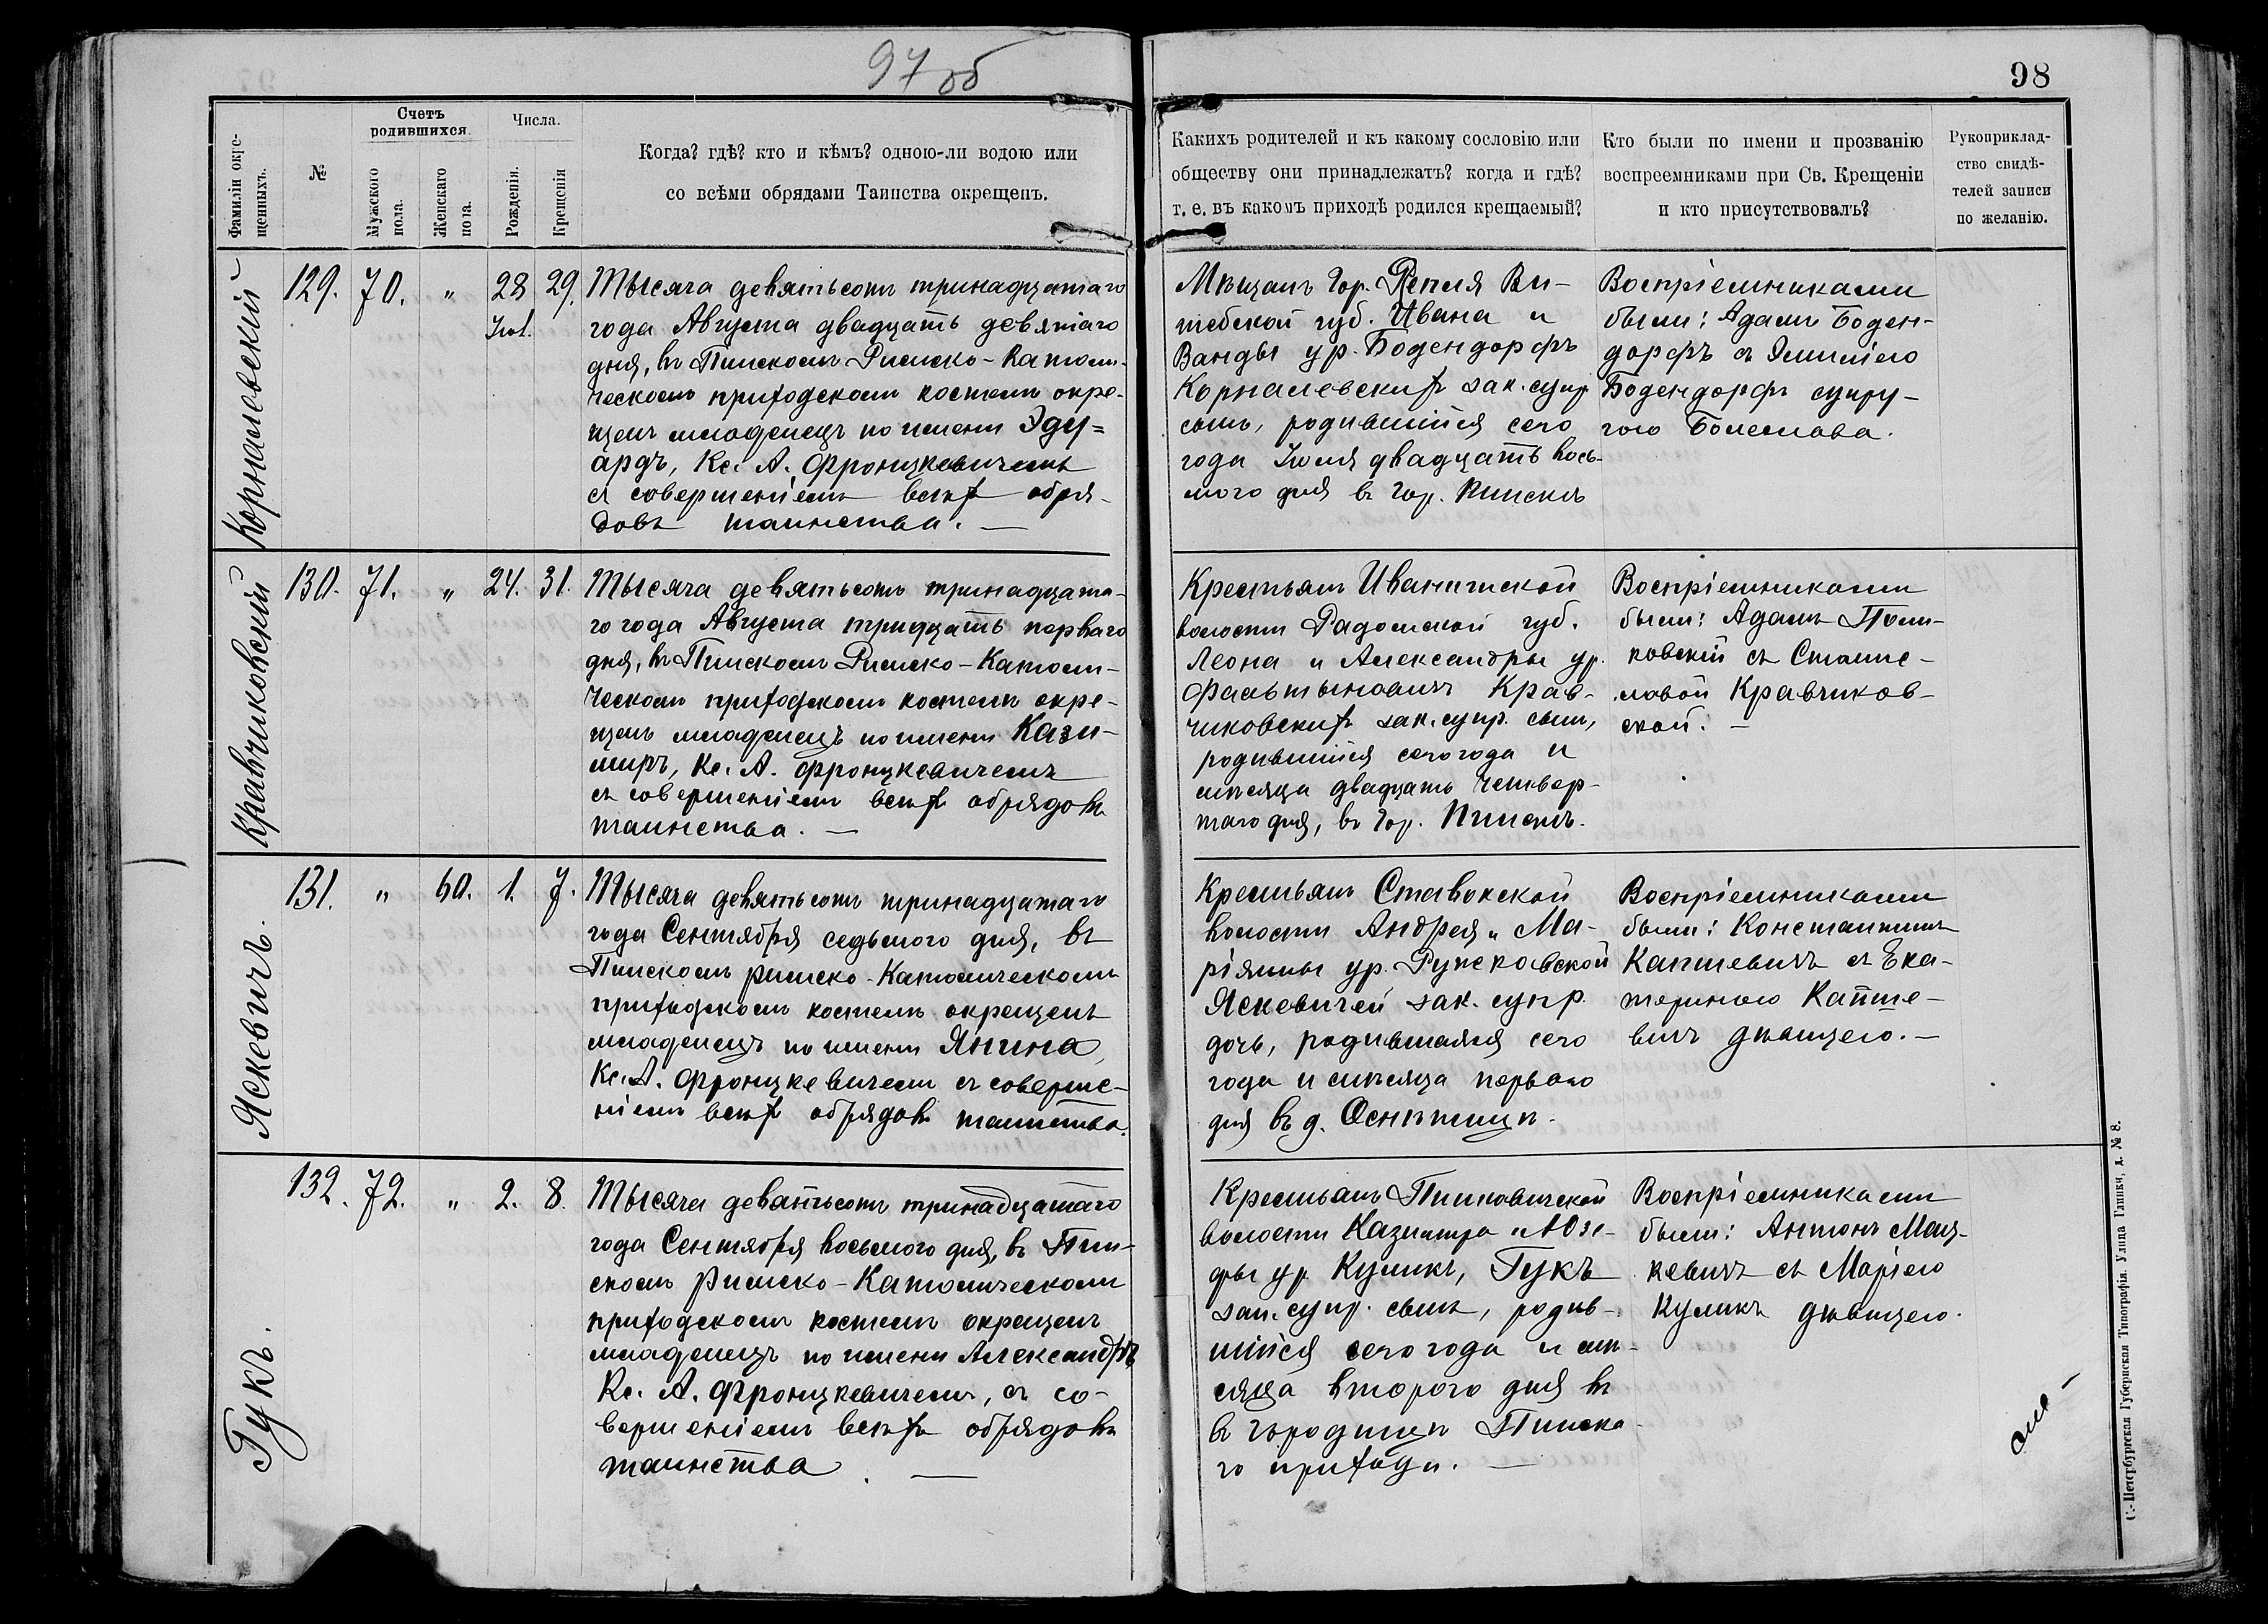 97 об
98
Фамиліи окре-
щенныхъ.
№
Счетъ
родившихся.
Мужского
пола.
Женскаго
пола.
Числа.
Рожденія.
Крещенія
Когда? гдѣ? кто и кѣмъ? одною-ли водою или
со всѣми обрядами Таинства окрещенъ.
Какихъ родителей и къ какому сословію или
обществу они принадлежатъ? когда и гдѣ?
т. е. въ какомъ приходѣ родился крещаемый?
Кто были по имени и прозванію
воспреемниками при Св. Крещеніи
и кто присутствовалъ?
Рукоприклад-
ство свидѣ-
телей записи
по желанію.
Корналевскій
129. 70. „ 28 29.
Іюл.
Тысяча девятьсотъ тринадцатаго
года Августа двадцать девятаго
дня, въ Пинскомъ Римско-Католи-
ческомъ приходскомъ костелѣ окре-
щенъ младенецъ по имени Эду=
ардъ, Кс. А. Фронцкевичемъ
съ совершеніемъ всѣхъ обря-
довъ таинства. —
Мѣщанъ Гор. Лепеля Ви-
тебской губ. Ивана и
Ванды ур. Бодендорфъ
Корналевскихъ зак. супр
сынъ, родившійся сего
года Іюля двадцать вось-
мого дня въ Гор. Пинскѣ
Воспріемниками
были: Адамъ Боден-
дорфъ съ Эмиліею
Бодендорфъ супру-
гою Болеслава.
Кравчиковскій
130. 71. „ 24. 31.
Тысяча девятьсотъ тринадцата-
го года Августа тридцать перваго
дня, въ Пинскомъ Римско-Католи-
ческомъ приходскомъ костелѣ окре-
щенъ младенецъ по имени Кази-
миръ, Кс. А. Фронцкевичемъ
съ совершеніемъ всѣхъ обрядовъ
таинства. —
Крестьянъ
волости Радомской губ.
Леона и Александры ур.
Фальтыновичъ Крав-
чиковскихъ зак. супр. сынъ,
родившійся сего года и
мѣсяца двадцать четвер-
таго дня, въ Гор. Пинскѣ.
Воспріемниками
были: Адамъ
съ Станис-
лавой Кравчиков-
ской. —
Яскевичъ.
131. „ 60. 1. 7.
Тысяча девятьсотъ тринадцатаго
года Сентября седьмого дня, въ
Пинскомъ римско-Католическомъ
приходскомъ костелѣ окрещенъ
младенецъ по имени Янина,
Кс. А. Фронцкевичемъ съ соверше-
ніемъ всѣхъ обрядовъ таинства.
Крестьянъ Ставокской
волости Андрея и Ма-
ріянны ур. Ружковской
Яскевичей зак. супр.
дочь, родившаяся сего
года и мѣсяца перваго
дня въ д. Оснѣжицѣ.
Воспріемниками
были: Константинъ
Капшевичъ съ Ека-
териною Капше-
вичъ дѣвицею. —
Гукъ.
132. 72. „ 2. 8.
Тысяча девятьсотъ тринадцатаго
года Сентября восьмого дня, въ Пин-
скомъ Римско-Католическомъ
приходскомъ костелѣ окрещенъ
младенецъ по имени Александръ
Кс. А. Фронцкевичемъ, съ со-
вершеніемъ всѣхъ обрядовъ
таинства. —
Крестьянъ Пинковичской
волости Казимира и Юзе-
фы ур. Куликъ, Гукъ
зак. супр. сынъ, родив-
шійся сего года и мѣ-
сяца второго дня въ
въ Городищѣ Пинска-
го прихода. —
Воспріемниками
были: Антонъ Мац-
кевичъ съ Маріею
Куликъ дѣвицею.
С.-Петербургская Губернская Типографія. Улица Глинки, д. № 8.